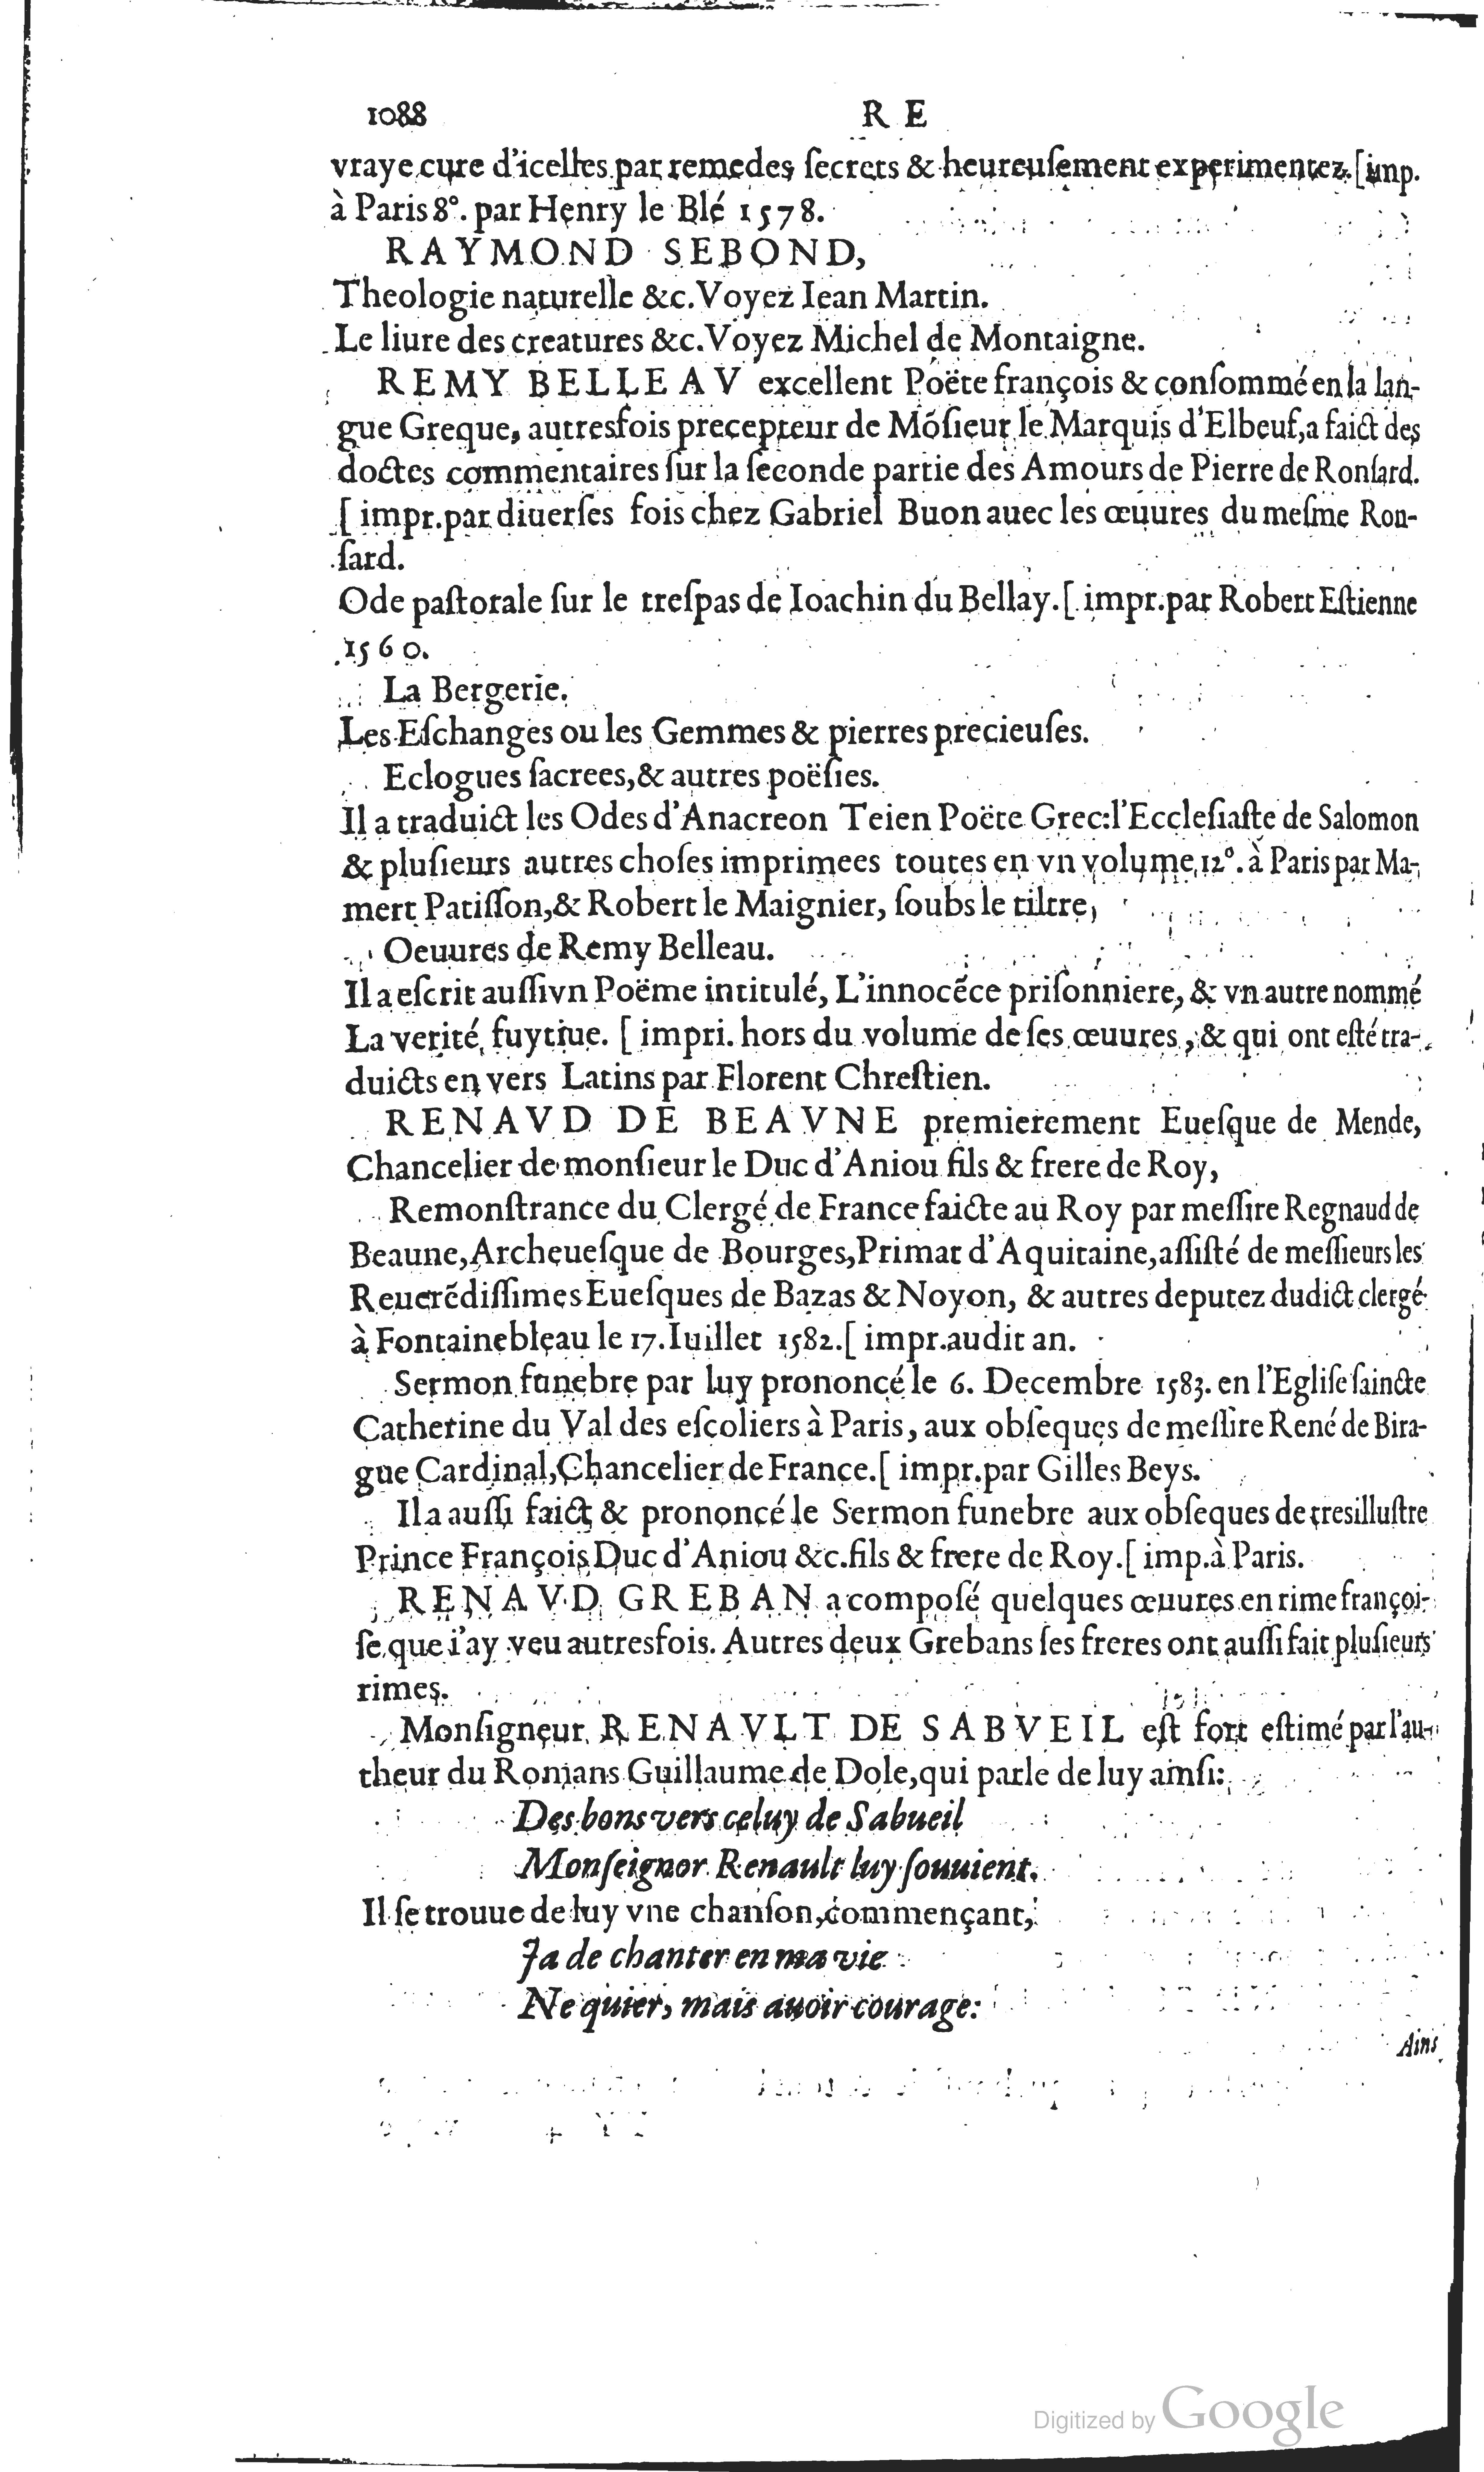 1088 R E
vraye cure d'icelles par remedes ſecrets & heureuſement experimentez. [imp.
à Paris 8°. par Henry le Blé 1578.
RAYMOND SEBOND,
Theologie naturelle &c. Voyez Iean Martin.
Le liure des creatures &c. Voyez Michel de Montaigne.
REMY BELLEAV excellent Poëte françois & conſommé en la lan-
gue Greque, autresfois precepteur de Mõſieur le Marquis d'Elbeuf, a faict des
doctes commentaires ſur la ſeconde partie des Amours de Pierre de Ronſard.
[impr. par diuerſes fois chez Gabriel Buon auec les œuures du meſme Ron-
ſard.
Ode paſtorale ſur le treſpas de Ioachin du Bellay. [impr. par Robert Eſtienne
1560.
La Bergerie.
Les Eſchanges ou les Gemmes & pierres precieuſes.
Eclogues ſacrees, & autres poëſies.
Il a traduict les Odes d'Anacreon Teien Poëte Grec: l'Eccleſiaſte de Salomon
& pluſieurs autres choſes imprimees toutes en vn volume, 12°. à Paris par Ma-
mert Patiſſon, & Robert le Maignier, ſoubs le tiltre,
Oeuures de Remy Belleau.
Il a eſcrit auſſi vn Poëme intitulé, L'innocẽce priſonniere, & vn autre nommé
La verité fuytiue. [impri. hors du volume de ſes œuures, & qui ont eſté tra-
duicts en vers Latins par Florent Chreſtien.
RENAVD DE BEAVNE premierement Eueſque de Mende,
Chancelier de monſieur le Duc d'Aniou fils & frere de Roy,
Remonſtrance du Clergé de France faicte au Roy par meſſire Regnaud de
Beaune, Archeueſque de Bourges, Primat d'Aquitaine, aſſiſté de meſſieurs les
Reuerẽdiſſimes Eueſques de Bazas & Noyon, & autres deputez dudict clergé
à Fontainebleau le 17. Iuillet 1582. [impr. audit an.
Sermon funebre par luy prononcé le 6. Decembre 1583. en l'Egliſe ſaincte
Catherine du Val des eſcoliers à Paris, aux obſeques de meſſire René de Bira-
gue Cardinal, Chancelier de France. [impr. par Gilles Beys.
Il a auſſi faict & prononcé le Sermon funebre aux obſeques de tresilluſtre
Prince François Duc d'Aniou &c. fils & frere de Roy. [imp. à Paris.
RENAVD GREBAN a compoſé quelques œuures en rime françoi-
ſe que i'ay veu autresfois. Autres deux Grebans ſes freres ont auſſi fait pluſieurs
rimes.
Monſigneur RENAVLT DE SABVEIL eſt fort eſtimé par l'au-
theur du Romans Guillaume de Dole, qui parle de luy ainſi:
Des bons vers celuy de Sabueil
Monſeignor Renault luy ſouuient.
Il ſe trouue de luy vne chanſon, commençant,
Ja de chanter en ma vie
Ne quier, mais auoir courage:
Ains
Digitized by Google